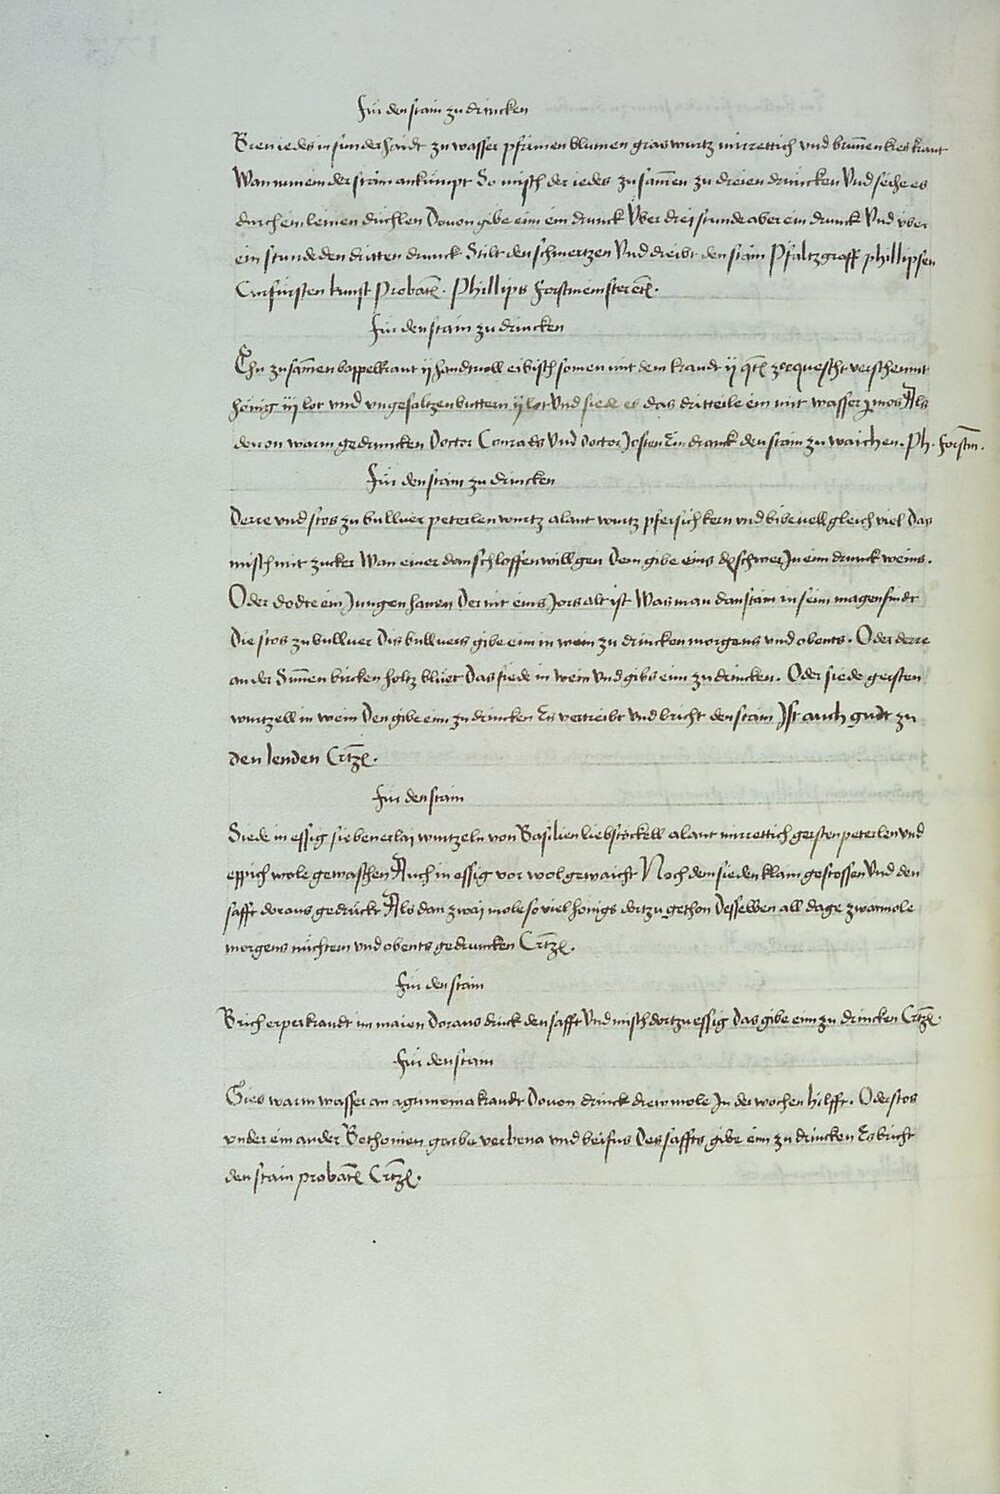 Fur den stain zu drincken
Bren iedes in sunderhaidt zu wasser pfrimen blumen graswurtz mirrettich vnd brunnenkres kraut
Wan nun eim der stain ankumpt So misch der iedes zusamen zu dreien druncken Vnd seihe es
durch ein leinen duchlen Douon gibe eim ein drunck Vber drei stunde aber ein drunck Vnd vber
ein stunde den dritten drunck Stilt den schmertzen Vnd dreibt den stain Pfaltzgraff phillipsen
Curfursten kunst Probatum. Phillips Forstmeister etc.
Fur den stain zu drincken
Thu zusamen bappelkraut ij handtuoll eibisch somen mit dem kraudt ij zerquescht verscheumt
honig iij lot vnd vngesaltzen buttern ij lot Vnd siede es das dritteile ein mit wasser Als
douon warm gedruncken Doctor Conrads Vnd doctor Josten Ein dranck den stain zu waichen. Ph. Forstm.
Fur den stain zu drincken
Derre vnd stos zu bulluer peterlen wurtz alant wurtz pfersich kern vnd bibenell gleich viel Das
misch mit zucker Wan einer dan schloffen will gen Dem gibe eins schwer In eim drunck weins.
Oder dodte ein Jungen hanen Der nit eins Jors alt ist Was man dan stain in seim magen findt
Die stos zu bulluer Dis bulluers gibe eim in wein zu drincken morgens vnd obents. Oder derre
an der Sunnen bircken holtz bluet Das siede in wein Vnd gibs eim zu drincken. Oder siede gersten
wurtzell in wein Den gibe eim zu drincken Es vertreibt Vnd bricht den stain Ist auch gudt zu
den lenden
Fur den stain
Siede in essig siebenerlai wurtzeln von Basilien liebstockell alant mirrettich gersten peterlen vnd
eppich wole gewaschen Auch in essig vor wol gewaicht Noch dem sieden klain gestossen Vnd den
safft doraus gedruckt Als dan zwai mole so viel honigs dortzu gethon Desselben all dage zwaimole
morgens nuchtern vnd obents gedruncken
Fur den stain
Brich erperkraudt im maien Doraus druck den safft Vnd misch dortzu essig Das gibe eim zu drincken
Fur den stain
Gies warm wasser an agrimonia kraudt Douon drinck drew mole In der wochen hilfft. Oder stos
vnder ein ander Bethonien garbe verbena vnd beifus Des saffts gibe eim zu drincken Es bricht
den stain probatum